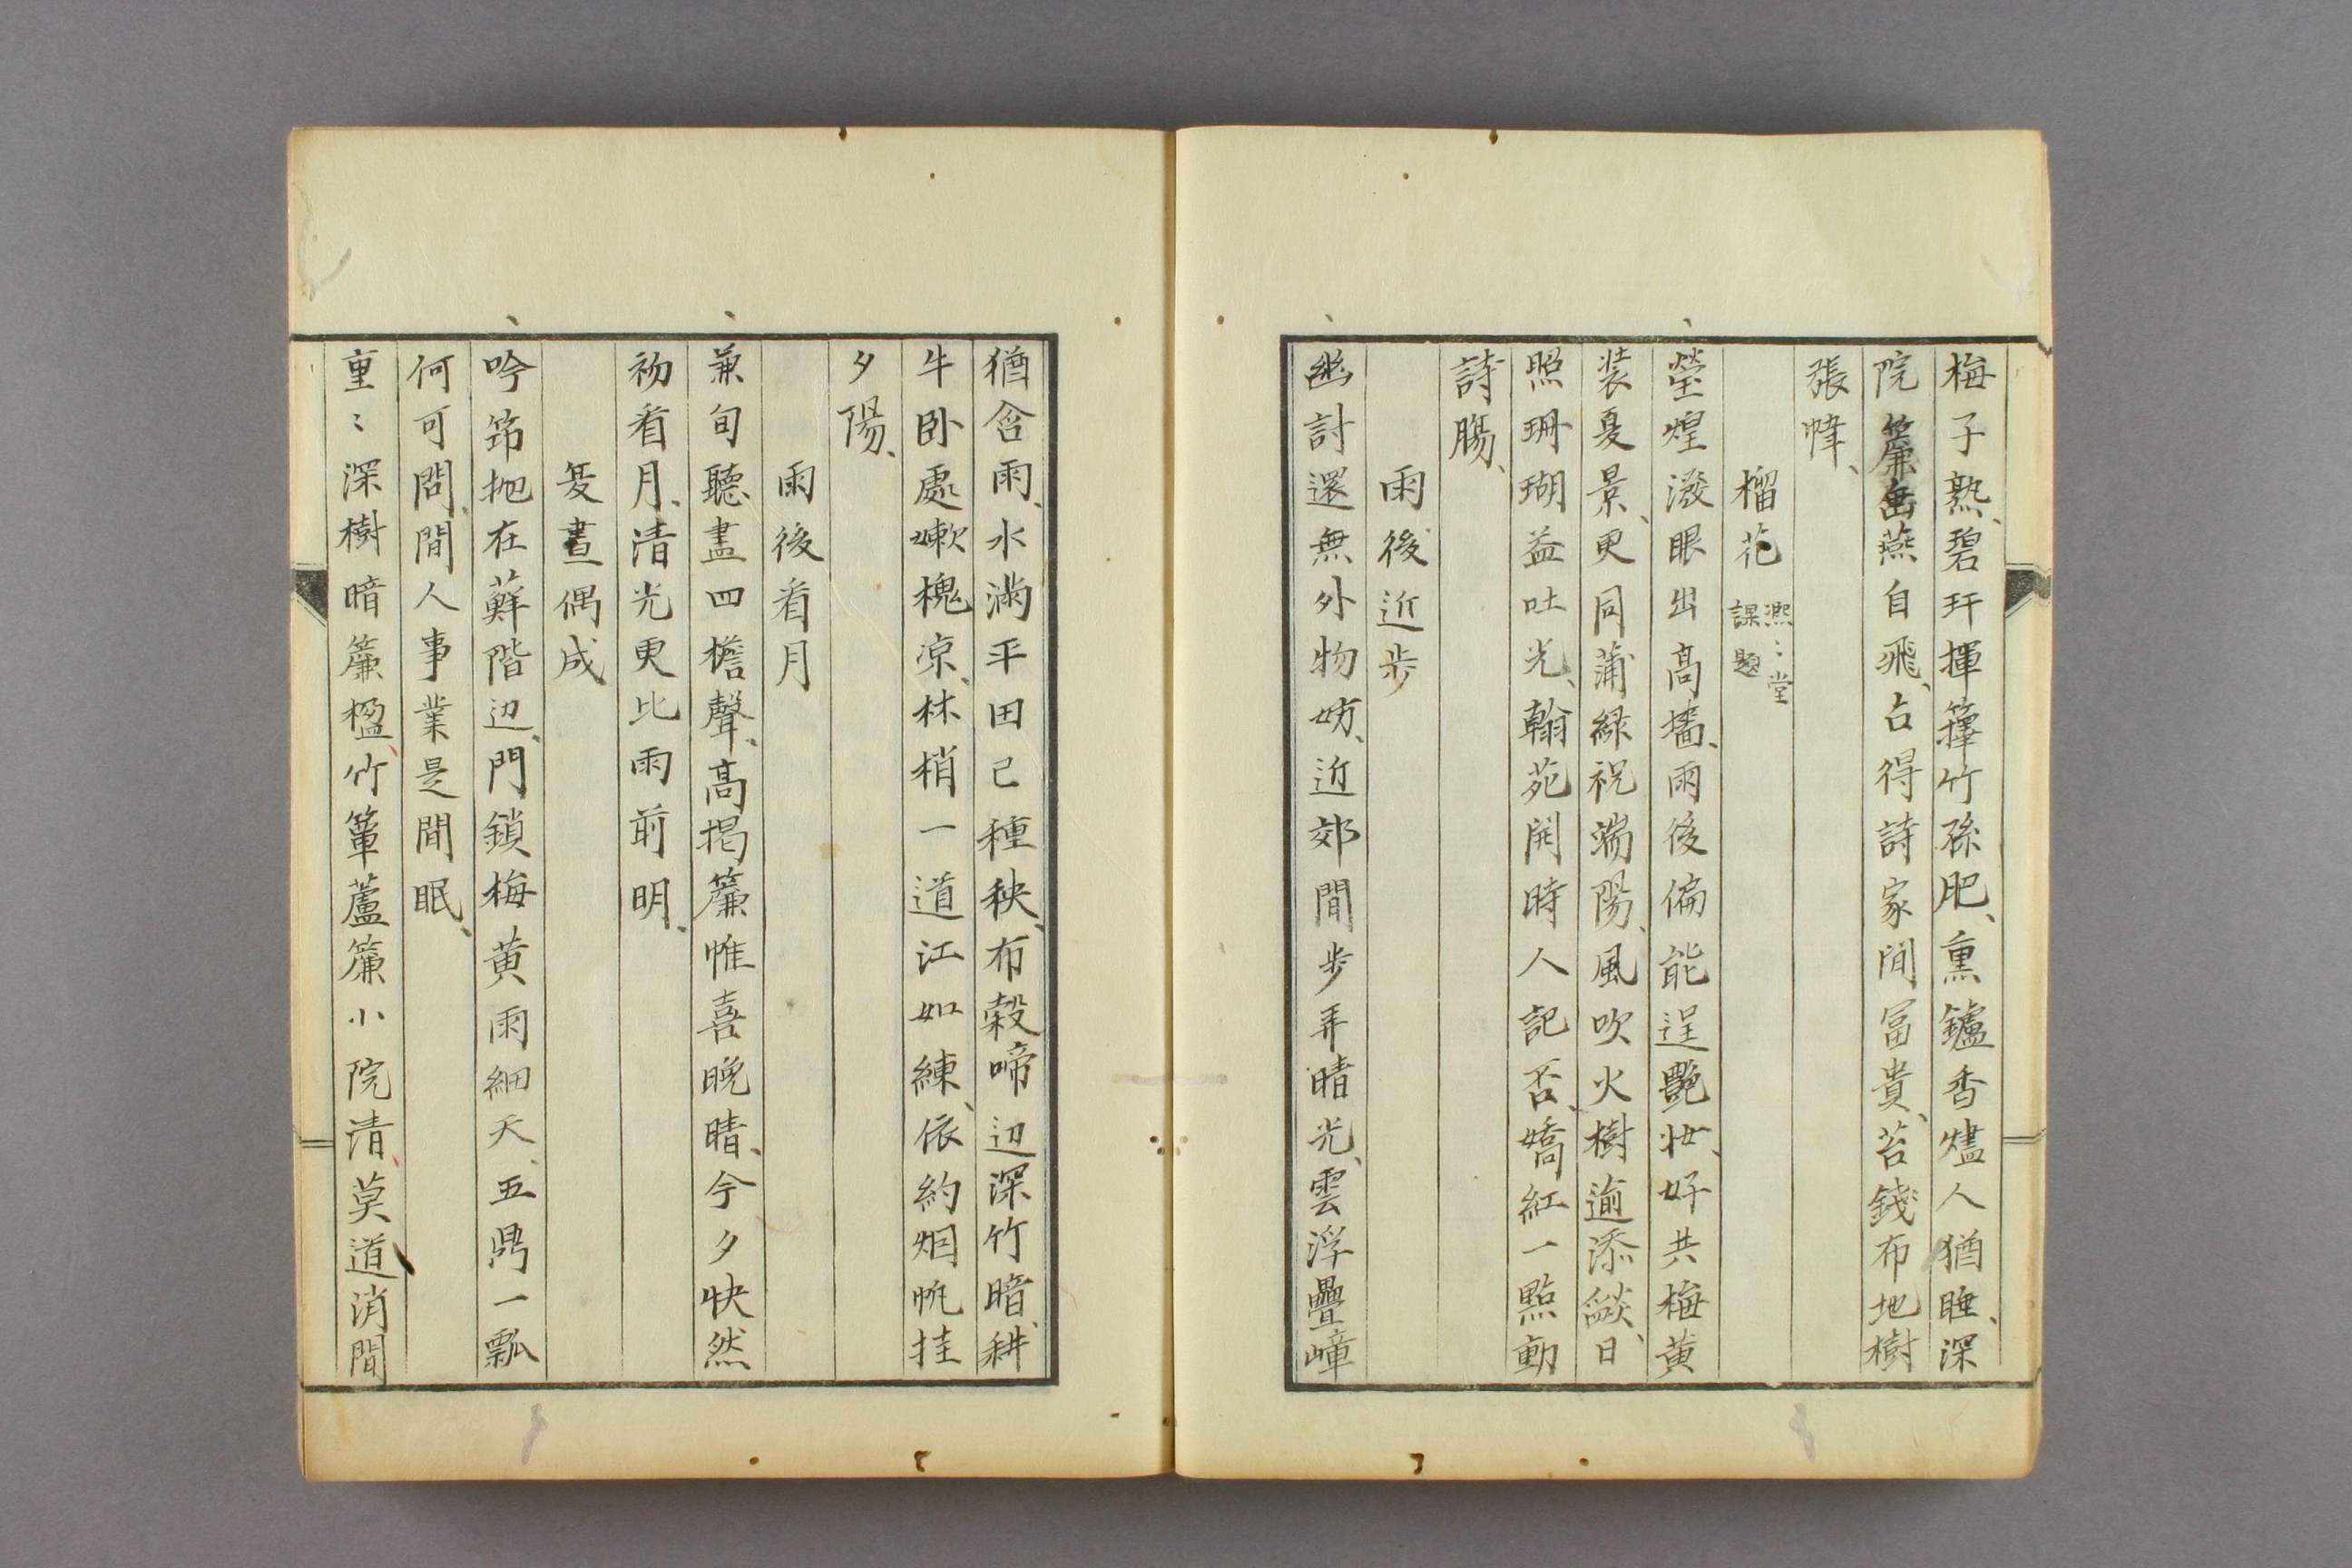 梅子熟、碧玕揮籜竹孫肥、熏鑪香燼人猶睡、深
院簾垂燕自飛、占得詩家間冨貴、苔錢布地樹
張幃、
榴花 熙〻堂課題
瑩煌潑眼出高墻、雨後偏能逞艷妝、好共梅黄
装夏景、更同蒲緑祝端陽、風吹火樹逾添燄、日
照珊瑚益吐光、翰苑開時人記否、嬌紅一點動
詩腸、
雨後近步
幽討還無外物妨、近郊間步弄晴光、雲浮疊嶂
猶含雨、水満平田已種秧、布榖啼辺深竹暗、耕
牛卧處嫰槐凉、林梢一道江如練、依約烟帆挂
夕陽、
雨後看月
兼旬聽盡四檐聲、高掲簾帷喜晩晴、今夕快然
初看月、清光更比雨前明、
夏晝偶成
吟笻抛在蘚階辺、門鎖梅黄雨細天、五鼎一瓢
何可問、間人事業是間眠、
重〻深樹暗簾楹、竹簟蘆簾小院清、莫道消間